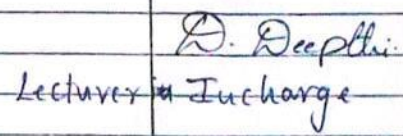 D. Deepthi.
Lecturer in Incharge